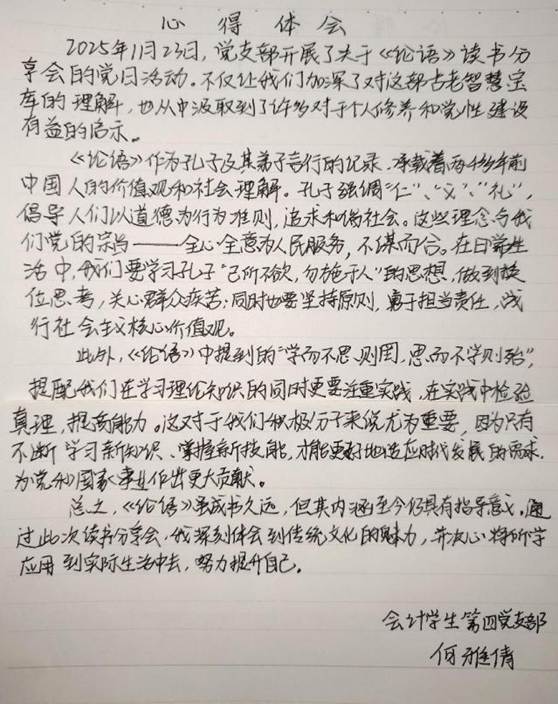 心得体会
2025年11月23日，党支部开展了关于《论语》读书分
享会的党日活动。不仅让我们加深了对这部古老智慧宝
库的理解，也从中汲取到了许多对于个人修养和党性建设
有益的启示。
《论语》作为孔子及其弟子言行的记录，承载着两千多年前
中国人的价值观和社会理解。孔子强调“仁”、“义”、“礼”，
倡导人们以道德为行为准则，追求和谐社会。这些理念与我
们党的宗旨——全心全意为人民服务，不谋而合。在日常生
活中，我们要学习孔子“己所不欲，勿施于人”的思想，做到换
位思考，关心群众疾苦；同时也要坚持原则，勇于担当责任，践
行社会主义核心价值观。
此外，《论语》中提到的“学而不思则罔，思而不学则殆”，
提醒我们在学习理论知识的同时更要注重实践，在实践中检验
真理，提高能力。这对于我们积极分子来说尤为重要，因为只有
不断学习新知识、掌握新技能，才能更好地适应时代发展的需求，
为党和国家事业作出更大贡献。
总之，《论语》虽成书久远，但其内涵至今仍具有指导意义。通
过此次读书分享会，我深刻体会到传统文化的魅力，并决心将所学
应用到实际生活中去，努力提升自己。
会计学生第四党支部
何雅倩